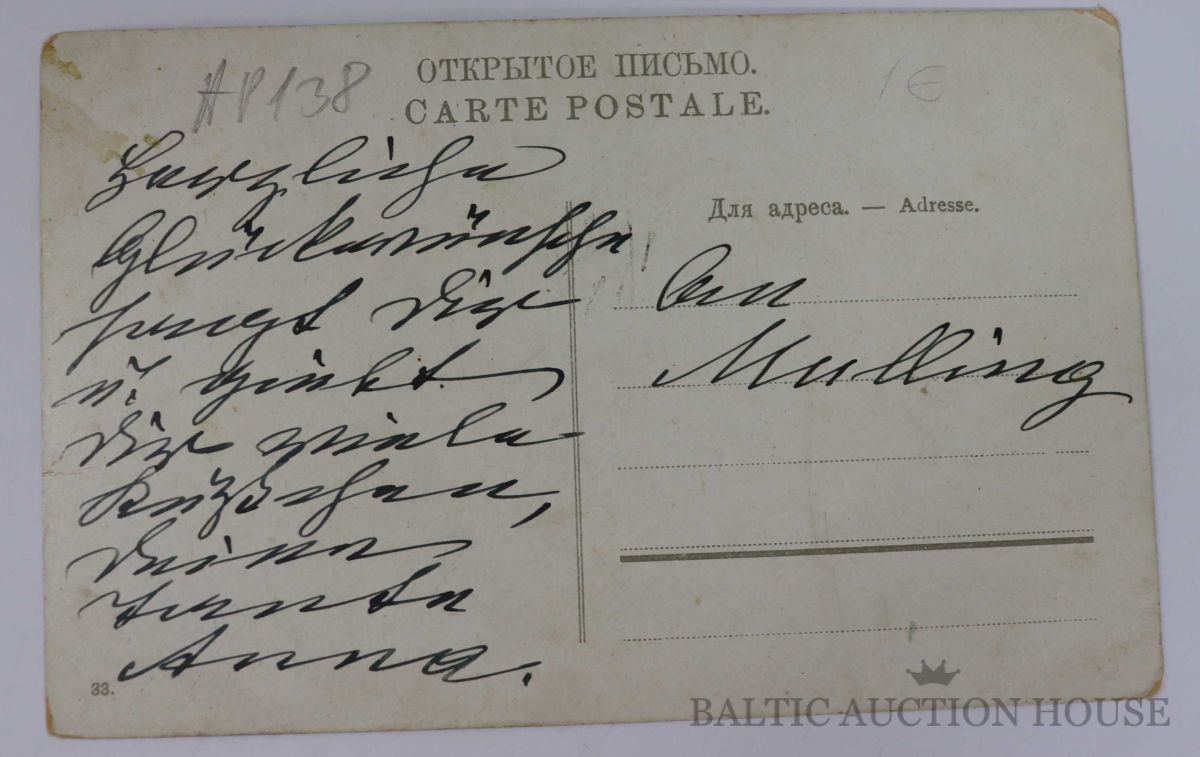 AP138
1€
ОТКРЫТОЕ ПИСЬМО.
CARTE POSTALE.
Herzliche
Glückwünsche
sagt Dir
u. giebt
Dir viele
Küßchen,
Deine
Tante
Anna.
33.
Для адреса. — Adresse.
An
Mulling
BALTIC AUCTION HOUSE